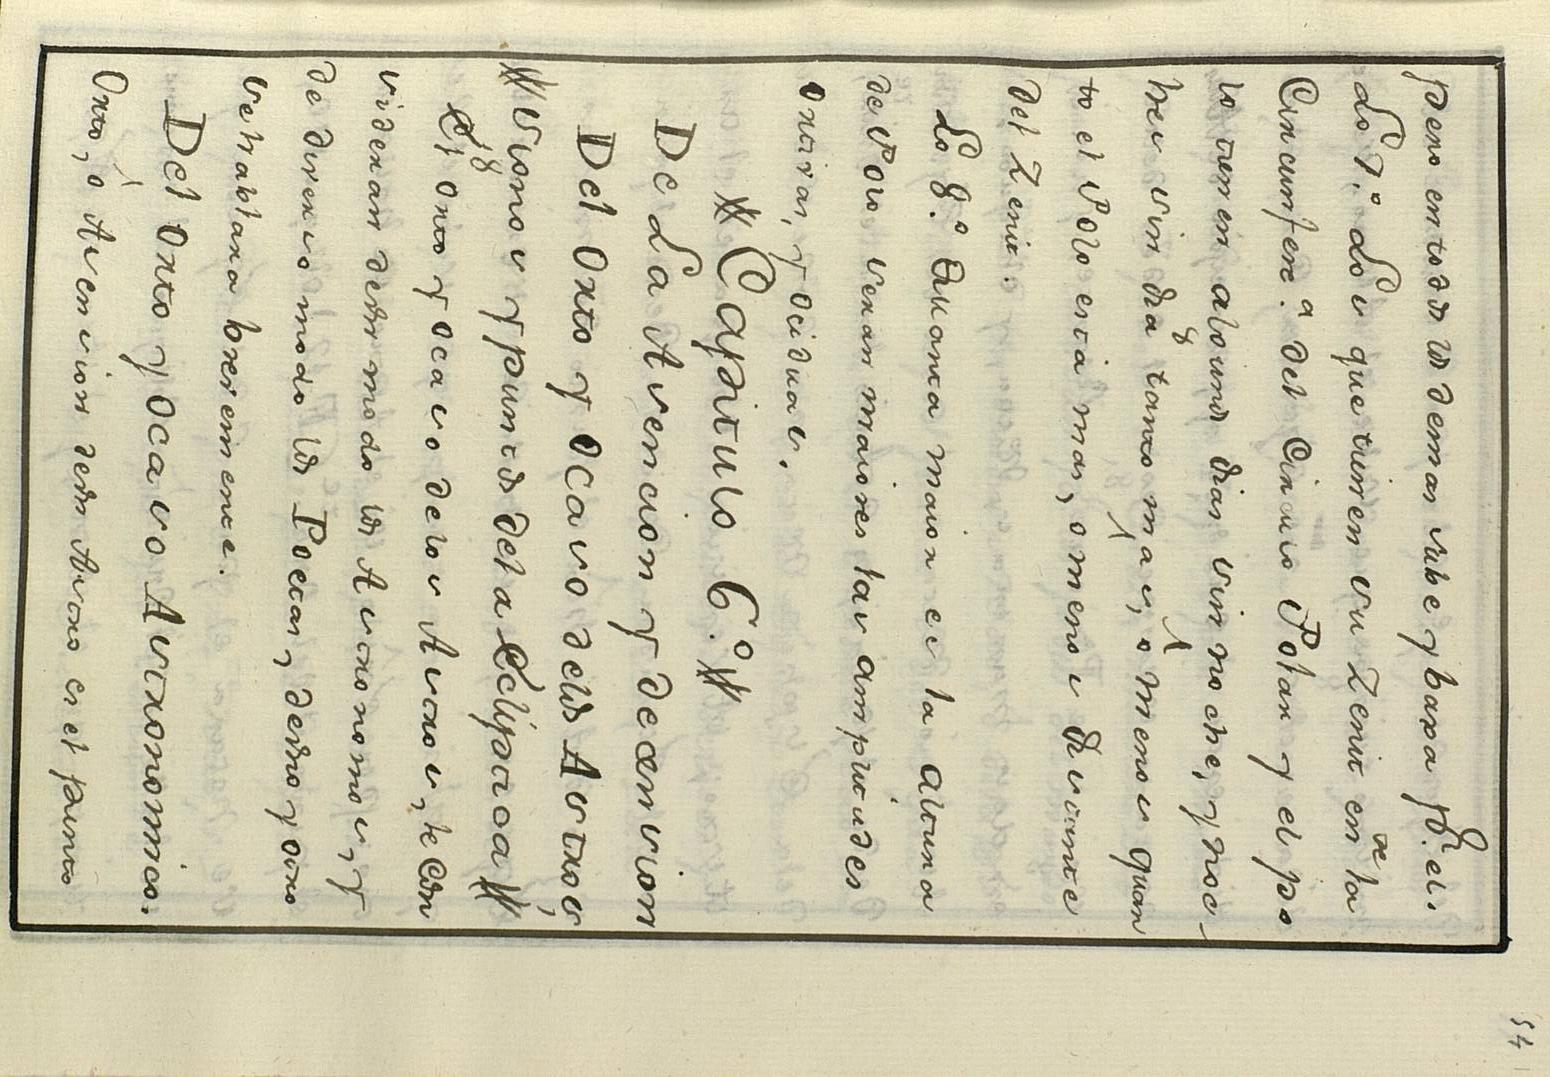 pero entodos los demas sube y baxa pr. el.
Lo 7.º Los que tienen su Zenit entre la
Circunfere.ª del Circulo Polar y el po
lo tienen algunos dias sin noche, y noc-
hes sin dia y tanto mas, o menos quan
to el Polo esta mas, o menos distante
del Zenit.
Lo 8.º quanta maior es la altura
de Polo seran maiores las amplitudes
ortivas, y ociduas.
Capitulo 6.º
De La Asencion y decension
Del Orto y Ocaso delos Astros,
Signos y puntos dela Ecliptica
El orto y ocaso delos Astros, se con
sideran deun modo los Astronomos, y
de diverso modo los Poetas, deuno y otro
se hablara brevemente.
Del Orto y Ocaso Astronomico.
Orto, o Asension deun Astro es el punto
54